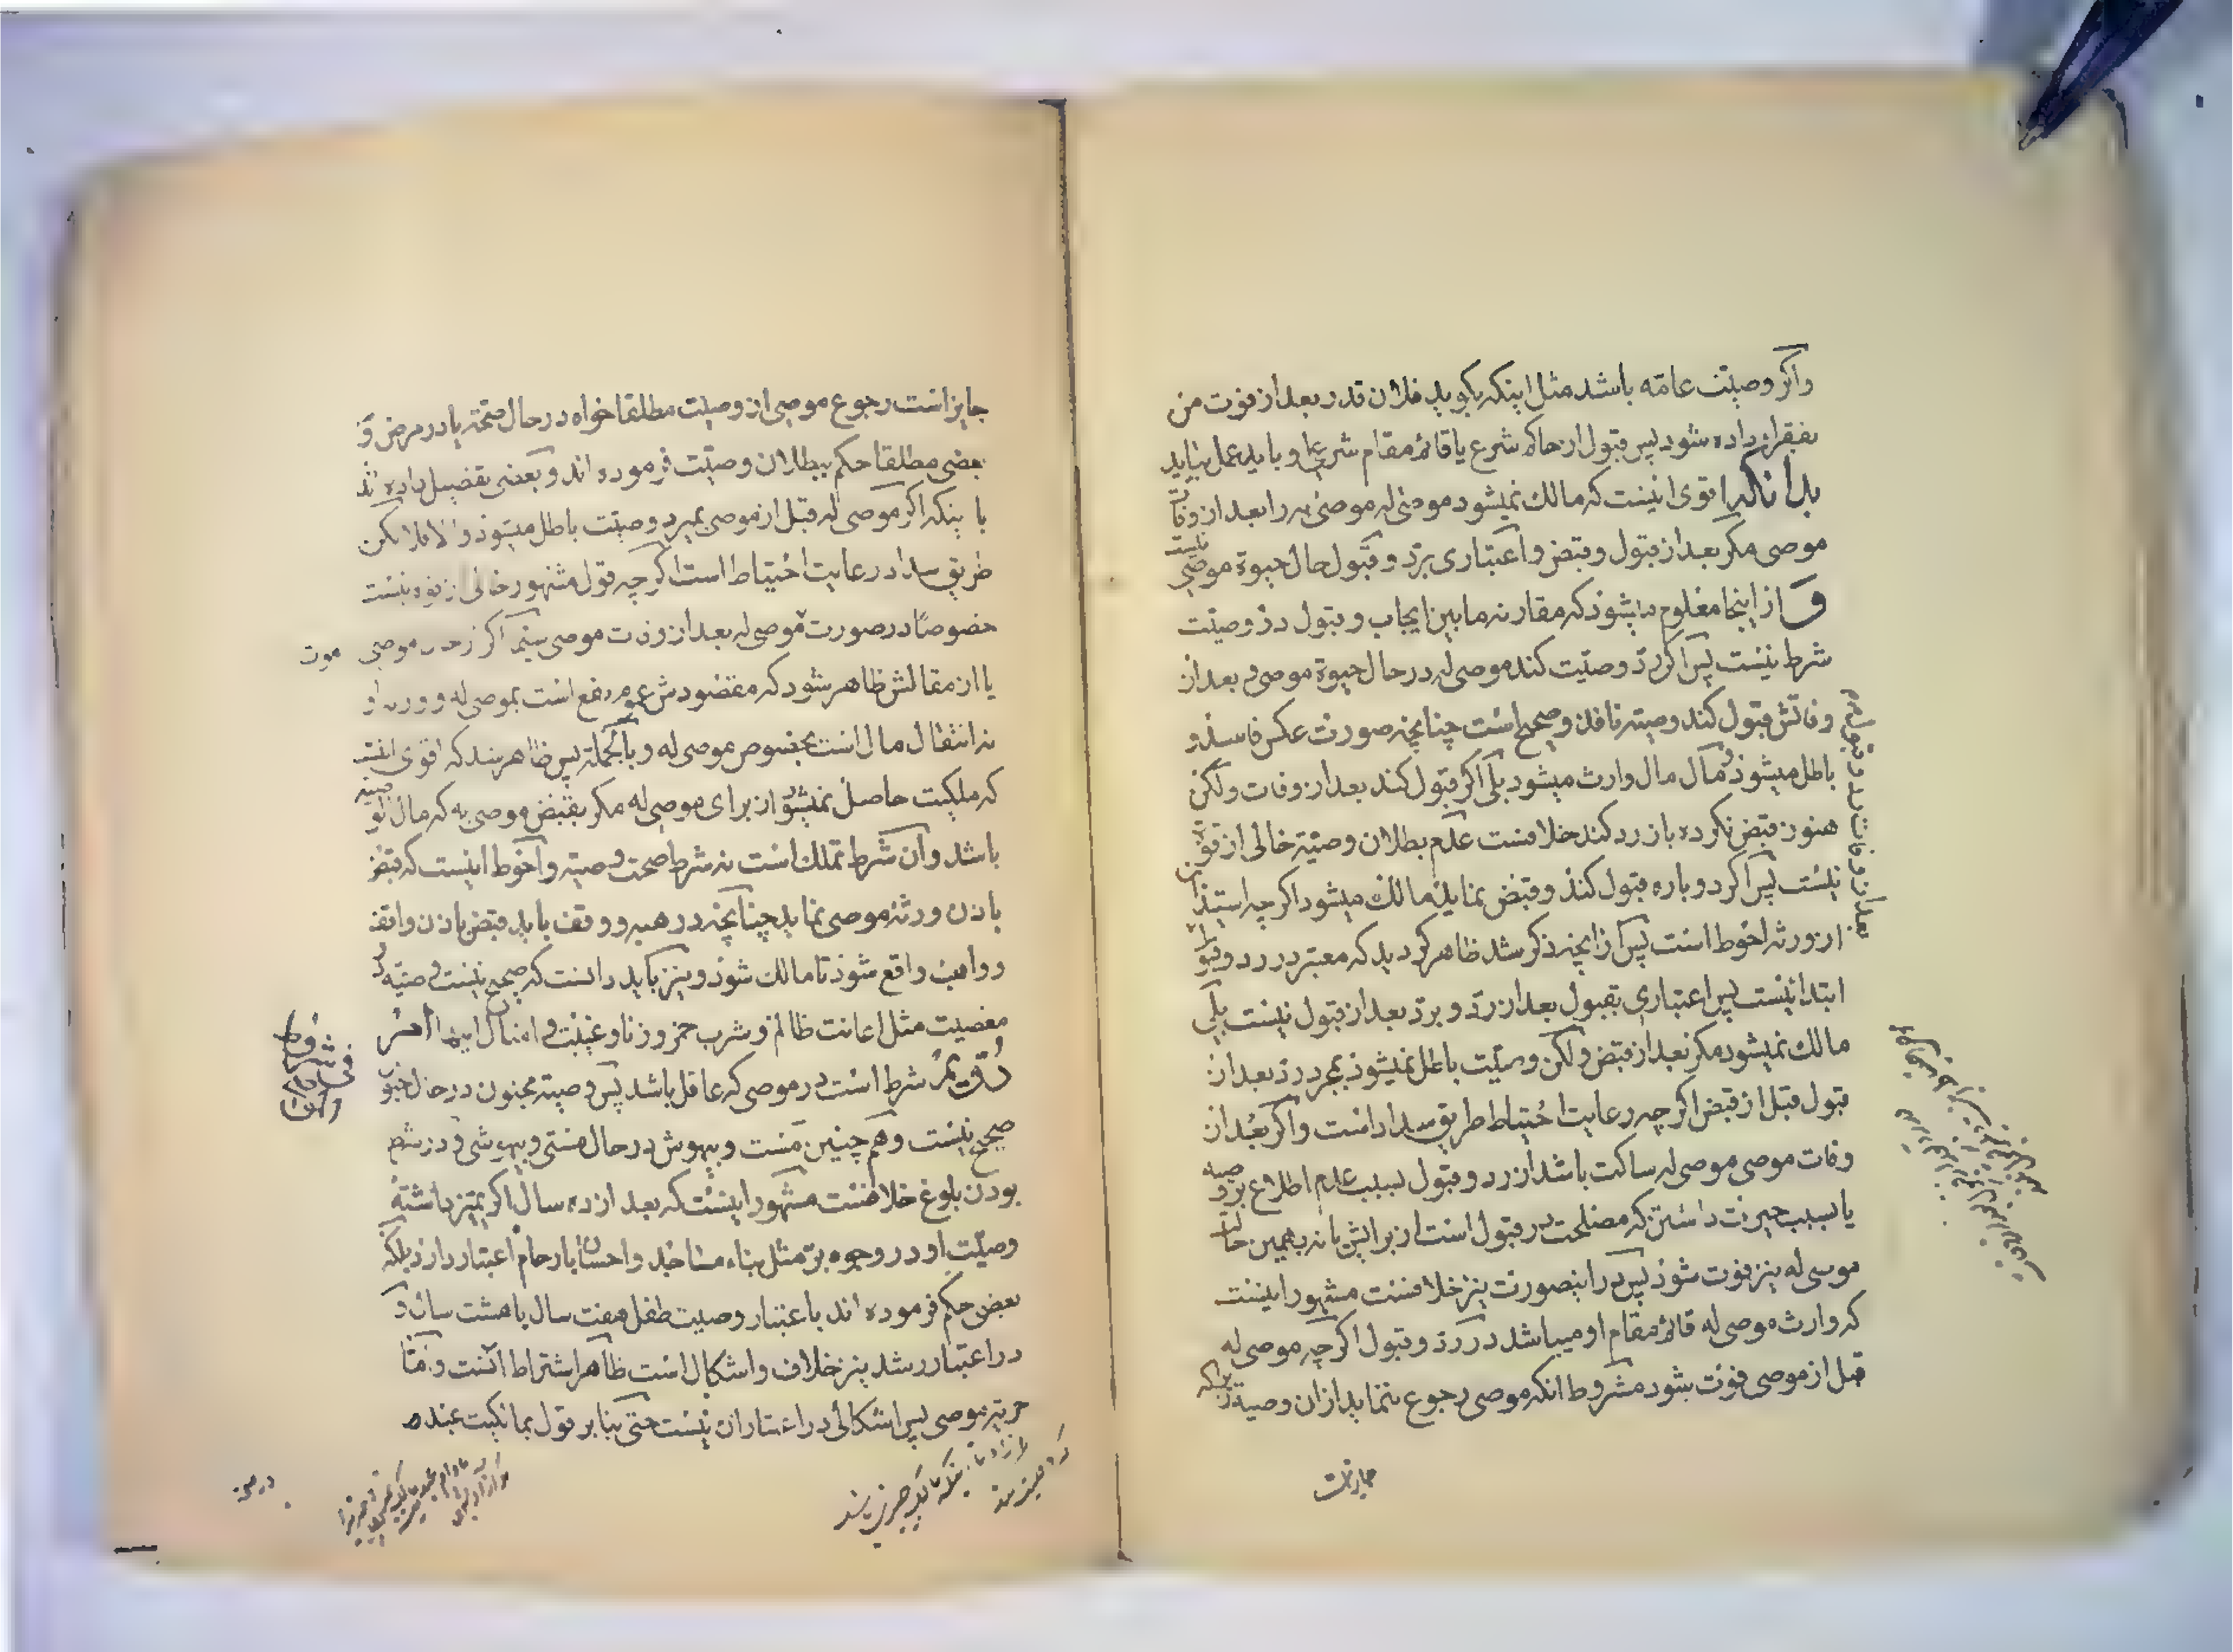 واکر وصیّت عامّه باشد مثل اینکه بکوید فلان قدر بعد از فوت من
بفقراء داده شود پس قبول از حاکم شرع یا قائم مقام شرعی او باید بعمل بیاید
بدانکه اقوی اینست که مالک نمیشود موصی له موصی به را بعد از وفات
موصی مکر بعد از قبول و قبض و اعتباری برد و قبول حال حیوة موصی نیست
و از اینجا معلوم میشود که مقارنه مابین ایجاب و قبول در وصیّت
شرط نیست پس اکر ردّ وصیّت کند موصی له در حال حیوة موصی و بعد از
وفاتش قبول کند وصیّته نافذ و صحیح است چنانچه صورت عکس فاسد و
باطل میشود و مال مال وارث میشود بلی اکر قبول کند بعد از وفات ولکن
هنوز قبض نکرده باز رد کند خلافست عدم بطلان وصیّة خالی از قوّة
نیست پس اکر دوباره قبول کند و قبض نماید مالک میشود اکر چه استیذان
از ورثه احوط است پس از انچه ذکر شد ظاهر کردید که معتبر در رد و قبول
ابتدا نیست پس اعتباری بقبول بعد از ردّ و بردّ بعد از قبول نیست بلی
مالک نمیشود مکر بعد از قبض ولکن وصیّت باطل نمیشود بمجرد ردّ بعد از
قبول قبل از قبض اکر چه رعایت احتیاط طریق سداد است و اکر بعد از
وفات موصی موصی له ساکت باشد از رد و قبول بسبب عدم اطلاع بر وصیه
یا بسبب حیرت داشتن که مصلحت در قبول است از برایش یا نه بهمین حالت
موصی له نیز فوت شود پس در اینصورت نیز خلافست مشهور اینست
که وارث موصی له قائم مقام او میباشد در ردّ و قبول اکر چه موصی له
قبل از موصی فوت بشود مشروط انکه موصی رجوع ننماید از ان وصیة زیرا که
جایز است
جایز است رجوع موصی از وصیّت مطلقا خواه در حال صحّة یا در مرض و
بعضی مطلقا حکم ببطلان وصیّت فرموده اند و بعضی تفصیل داده اند
با ینکه اکر موصی له قبل از موصی بمیرد وصیّت باطل میشود والا فلا لکن
طریق سداد رعایت احتیاط است اکر چه قول مشهور خالی از قوة نیست
خصوصًا در صورت موصی له بعد از وفات موصی سیّما اکر از موصی
موت
یا از مقالش ظاهر شود که مقصودش عموم نفع است بموصی له و ورثه او
نه انتقال مال است بخصوص موصی له و بالجملة پس ظاهر شد که اقوی انست
که ملکیت حاصل نمیشود از برای موصی له مکر بقبض موصی به که مال وصیه
باشد و ان شرط تملک است نه شرط صحت وصیّه و احوط اینست که قبض
باذن ورثه موصی نماید چنانچه در هبه و وقف باید قبض باذن واقف
و واهب واقع شود تا مالک شود و نیز باید دانست که صحیح نیست وصیّه در
معصیت مثل اعانت ظالم و شرب خمر و زنا و غیبت و امثال اینها
شرط است در موصی که عاقل باشد پس وصیته مجنون در حال جنون
صحیح نیست و هم چنین مست و بیهوش در حال مستی و بیهوشی و در شرط
بودن بلوغ خلافست مشهور اینست که بعد از ده سال اکر تمیز داشته
وصیّت او در وجوه برّ مثل بناء مساجد و احسان بارحام اعتبار دارد بلکه
بعض حکم فرموده اند باعتبار وصیت طفل هفت سال یا هشت سال و
در اعتبار رشد نیز خلاف و اشکال است ظاهر اشتراط آنست و امّا
حریّه موصی پس اشکالی در اعتبار ان نیست حتی بنابر قول بمالکیت عبد